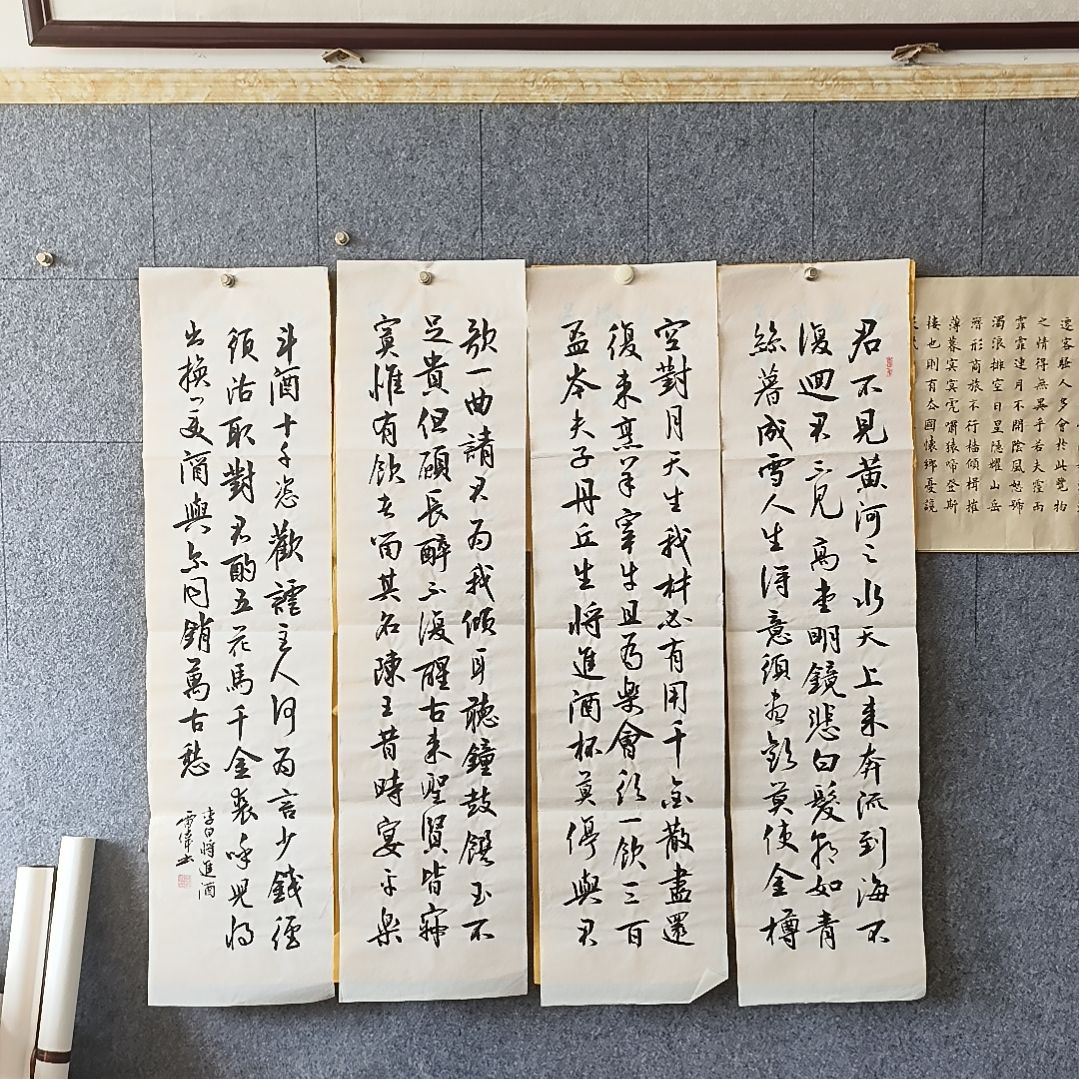 遷客騷人多會於此覽物
之情得無異乎若夫霪雨
霏霏連月不開陰風怒號
濁浪排空日星隱耀山岳
潛形商旅不行檣傾楫摧
薄暮冥冥虎嘯猿啼登斯
樓也則有去國懷鄉憂讒
君不見黃河之水天上来奔流到海不
復迴君不見高堂明鏡悲白髮朝如青
絲暮成雪人生得意須盡歡莫使金樽
空對月天生我材必有用千金散盡還
復来烹羊宰牛且為樂會須一飲三百
盃岑夫子丹丘生將進酒杯莫停與君
歌一曲請君為我傾耳聽鐘鼓饌玉不
足貴但願長醉不復醒古来聖賢皆寂
寞惟有飲者留其名陳王昔時宴平樂
斗酒十千恣歡謔主人何為言少錢徑
須沽取對君酌五花馬千金裘呼兒將
出換美酒與尔同銷萬古愁
李白將進酒